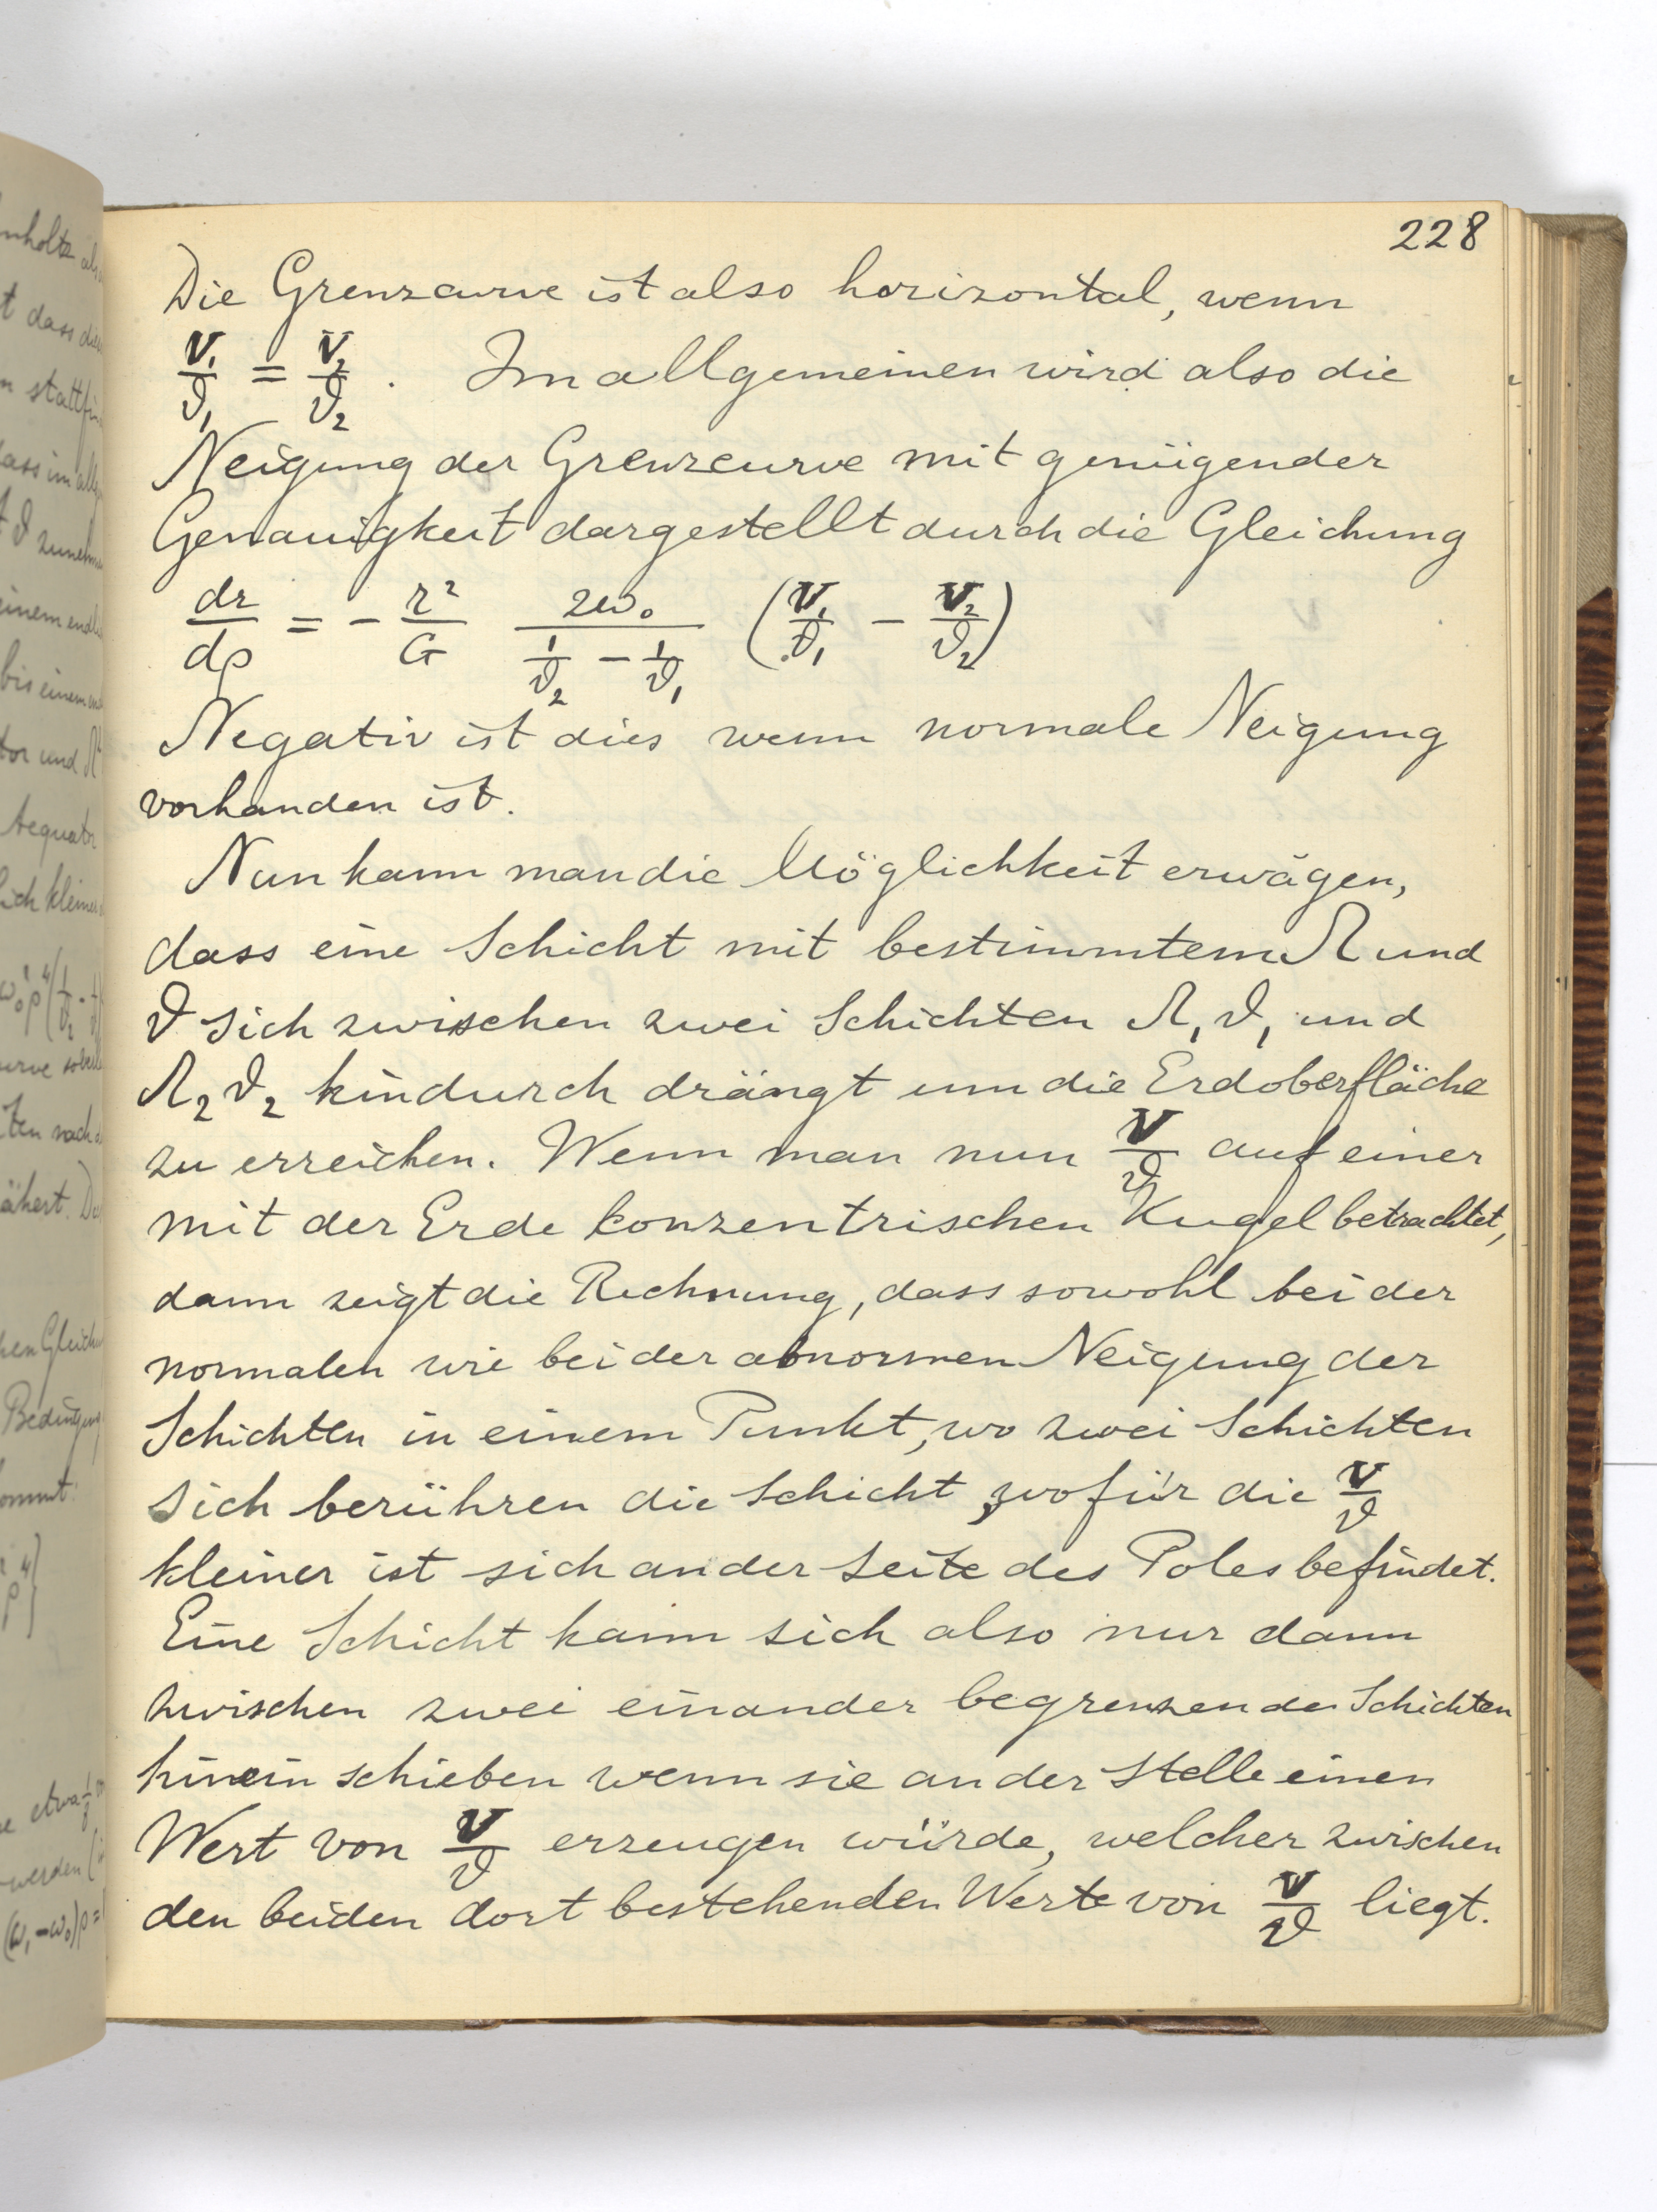 228
Die Grenzcurve ist also horizontal, wenn
V₁/ϑ₁ = V₂/ϑ₂ . Im allgemeinen wird also die
Neigung der Grenzcurve mit genügender
Genauigkeit dargestellt durch die Gleichung
dr/dρ = - r²/G 2ω₀/(1/ϑ₂ - 1/ϑ₁) (V₁/ϑ₁ - V₂/ϑ₂)
Negativ ist dies wenn normale Neigung
vorhanden ist.
Nun kann man die Möglichkeit erwägen,
dass eine Schicht mit bestimmtem Ω und
ϑ sich zwischen zwei Schichten Ω₁ϑ₁ und
Ω₂ϑ₂ hindurch drängt um die Erdoberfläche
zu erreichen. Wenn man nun V/ϑ auf einer
mit der Erde konzentrischen Kugel betrachtet,
dann zeigt die Rechnung, dass sowohl bei der
normalen wie bei der abnormen Neigung der
Schichten in einem Punkt, wo zwei Schichten
sich berühren die Schicht, wofür die V/ϑ
kleiner ist sich an der Seite des Poles befindet.
Eine Schicht kann sich also nur dann
zwischen zwei einander begrenzende Schichten
hinein schieben wenn sie an der Stelle einen
Wert von V/ϑ erzeugen würde, welcher zwischen
den beiden dort bestehenden Werte von V/ϑ liegt.